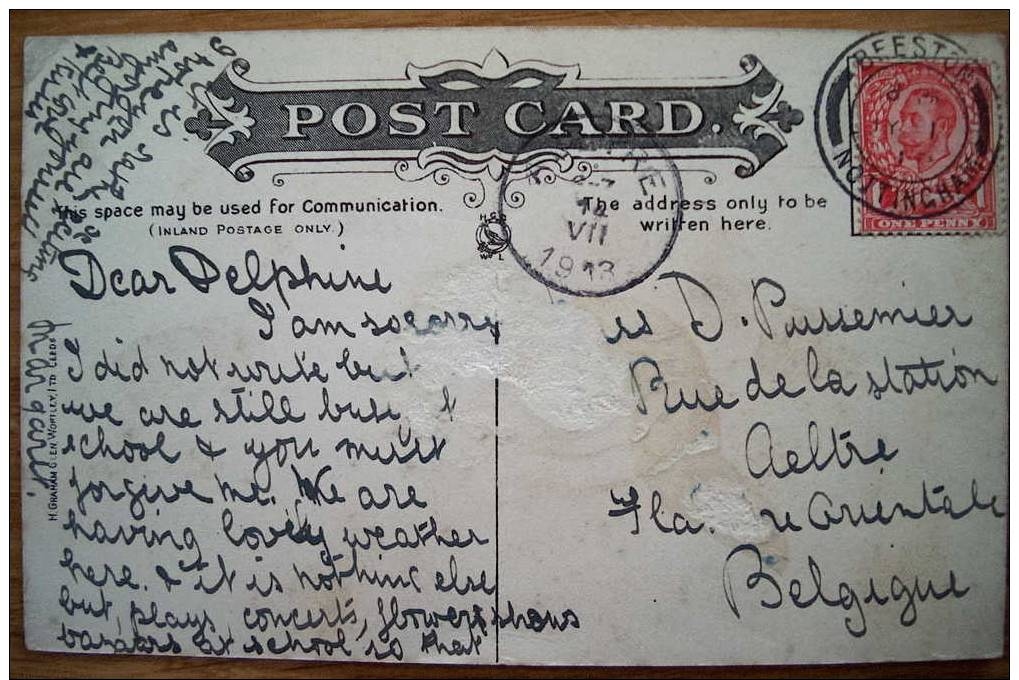 POST CARD.
This space may be used for Communication.
(INLAND POSTAGE ONLY.)
The address only to be
written here.
BEESTON
NOTTINGHAM
ONE PENNY
VII
1913
Dear Delphine
I am socorry
I did not write but
we are still busy
school & you must
forgive me. We are
having lovely weather
here. & it is nothing else
but, plays, concerts, flower shows
bazaars at school so that
Margaret.
ss D. Parremier
Rue de la station
Aeltre
Fla re Orientale
Belgique
H. GRAHAM GLEN WORTLEY, LTD LEEDS